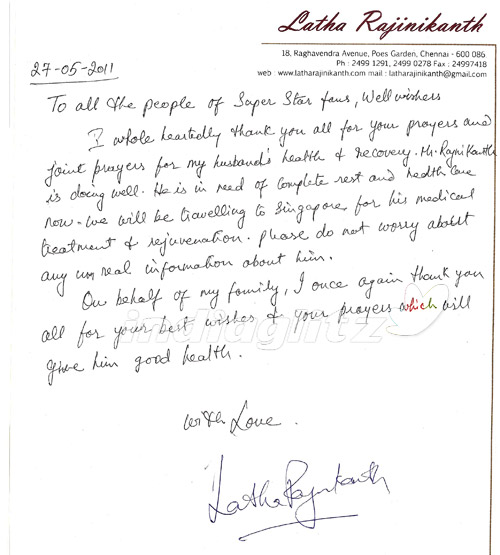 Latha Rajinikanth
18, Raghavendra Avenue, Poes Garden, Chennai - 600 086
Ph : 2499 1291, 2499 0278 Fax : 24997418
web : www.latharajinikanth.com mail : latharajinikanth@gmail.com
27-05-2011
To all the people of Super Star fans, Well wishers
I whole heartedly thank you all for your prayers and
joint prayers for my husband's health & recovery. Mr. Rajni Kanth
is doing well. He is in need of complete rest and health care
now. we will be travelling to Singapore for his medical
treatment & rejuvenation. please do not worry about
any un real information about him.
On behalf of my family, I once again thank you
all for your best wishes & your prayers which will
give him good health.
indiaglitz
with Love.
Latha Rajnikanth